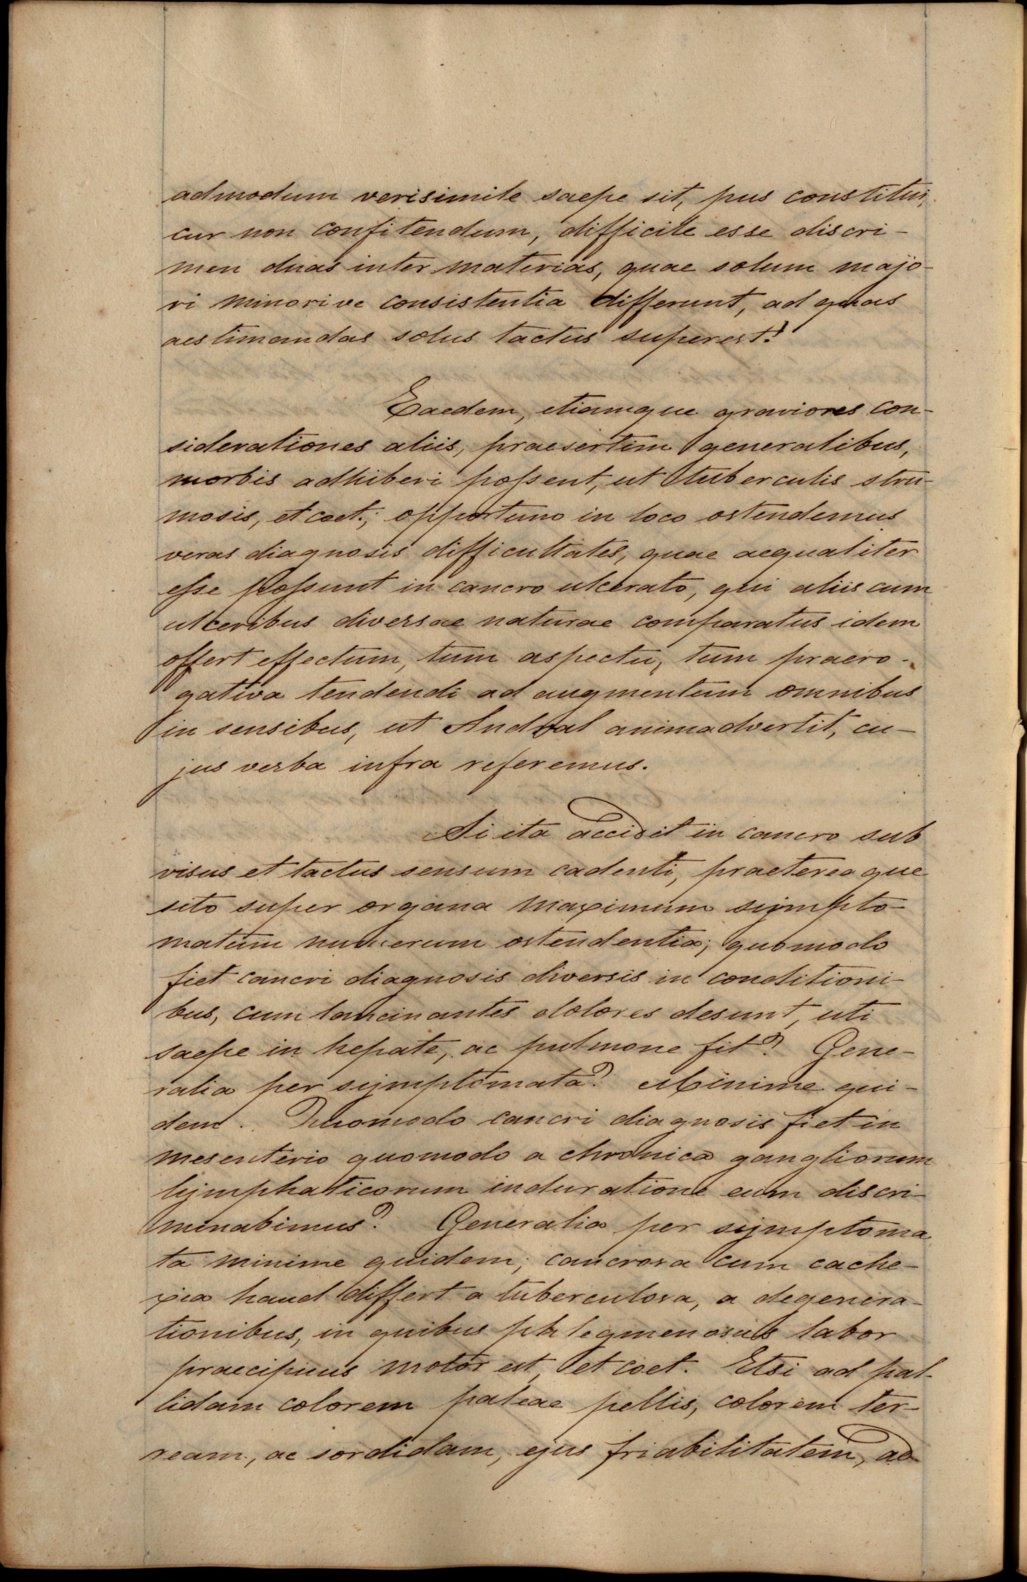 admodum verisimile saepe sit, pus constitui,
cur non confitendum, difficile esse discri-
men duas inter materias, quae solum majo-
ri minorive consistentia differunt, ad quas
aestimandas solus tactus superest!
Eaedem, etiamque graviores con-
siderationes aliis, praesertim generalibus,
morbis adhiberi possent, ut tuberculis stru-
mosis, et coet.; opportuno in loco ostendemus
veras diagnosis difficultates, quae aequaliter
esse possunt in cancro ulcerato, qui aliis cum
ulceribus diversae naturae comparatus idem
offert effectum, tum aspectu, tum praero-
gativa tendendi ad augmentum omnibus
in sensibus, ut Andral animadvertit, cu-
jus verba infra referemus.
Si ita accidit in cancro sub
visus et tactus sensum cadenti, praetereaque
sito super organa maximum sympto-
matum numerum ostendentia; quomodo
fiet cancri diagnosis diversis in conditioni-
bus, cum lancinantes dolores desunt, uti
saepe in hepate, ac pulmone fit? Gene-
ralia per symptomata? Minime qui-
dem. Quomodo cancri diagnosis fiet in
mesenterio quomodo a chronica gangliorum
lymphaticorum induratione eum discri-
minabimus? Generalia per symptoma
ta minime quidem; cancrosa cum cache-
xia haud differt a tuberculosa, a degenera-
tionibus, in quibus phlegmenosus labor
praecipuus motor est, et coet. Etsi ad pal-
lidam colorem paleae pellis, colorem ter-
ream, ac sordidam, ejus friabilitatem, ad